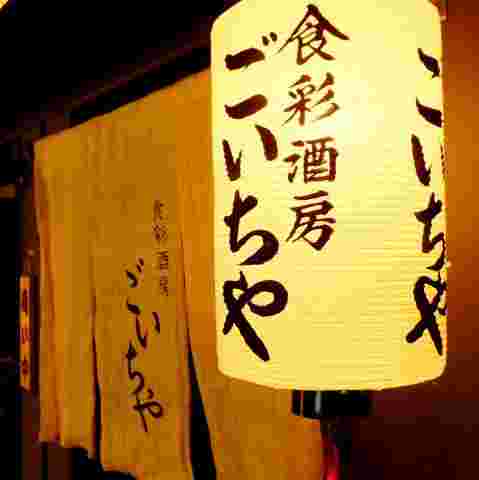 食彩酒房
ごいちや
ごいちや
食彩酒房
ごいちや